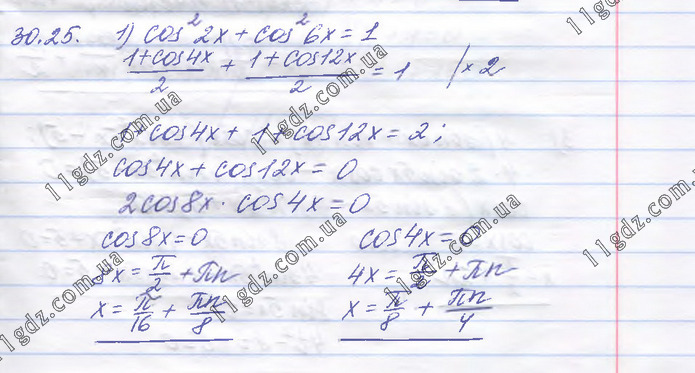 30.25. 1) cos²2x + cos²6x = 1
(1+cos4x)/2 + (1+cos12x)/2 = 1 | × 2
1+cos4x + 1+cos12x = 2;
cos4x + cos12x = 0
2cos8x · cos4x = 0
cos8x = 0 cos4x = 0
8x = π/2 + πn 4x = π/2 + πn
x = π/16 + πn/8 x = π/8 + πn/4
11gdz.com.ua
11gdz.com.ua
11gdz.com.ua
11gdz.com.ua
11gdz.com.ua
11gdz.com.ua
11gdz.com.ua